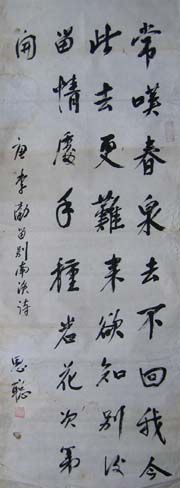 常嘆春泉去不回我今
此去更難來欲知別後
留情處手種岩花次第
開
唐李勃留別南溪詩
思聰